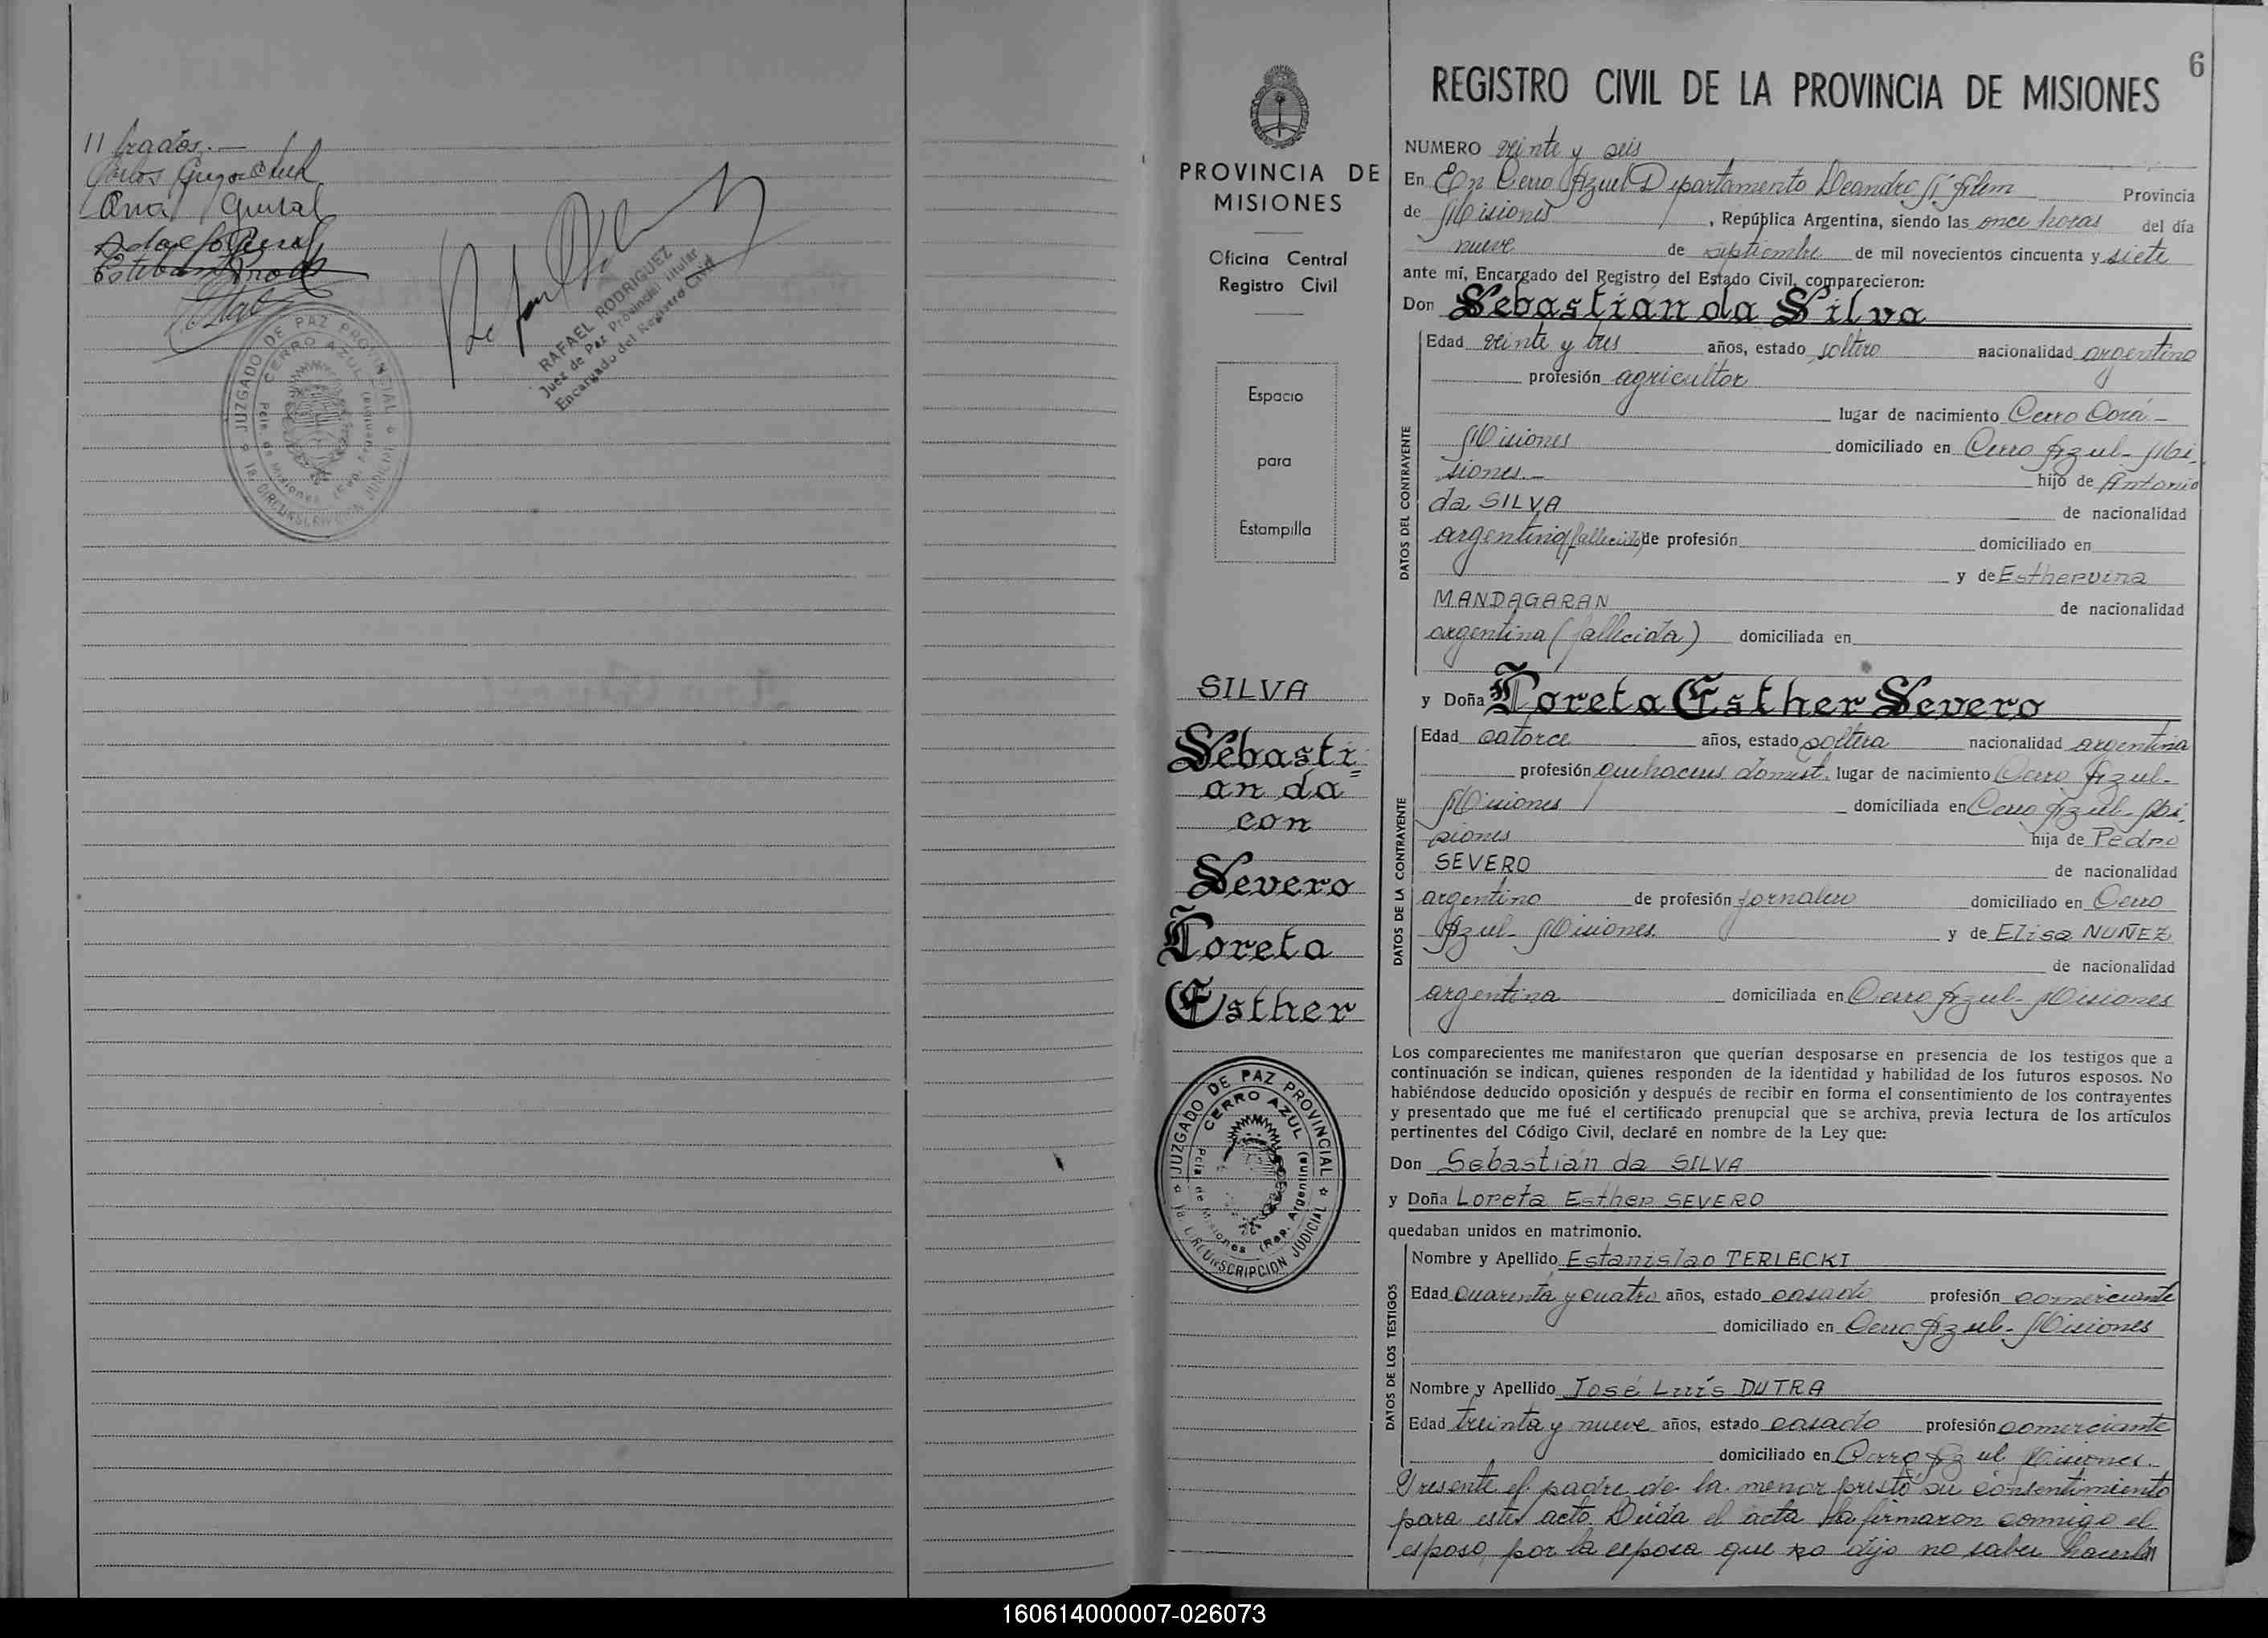 11 grados.—
Carlos
Ana Gural
Adolfo Gural
Esteban
RAFAEL RODRIGUEZ
Juez de Paz Provincial Titular
Encargado del Registro Civil
JUZGADO DE PAZ PROVINCIAL
CERRO AZUL
Pcia. de Misiones (Rep. Argentina)
1a. CIRCUNSCRIPCION JUDICIAL
PROVINCIA DE
MISIONES
Oficina Central
Registro Civil
Espacio
para
Estampilla
SILVA
Sebasti=
an da
con
Severo
Loreta
Esther
JUZGADO DE PAZ PROVINCIAL
CERRO AZUL
Pcia de Misiones (Rep. Argentina)
1a. CIRCUNSCRIPCION JUDICIAL
6
REGISTRO CIVIL DE LA PROVINCIA DE MISIONES
NUMERO veinte y seis
En En Cerro Azul Departamento Leandro N. Alem Provincia
de Misiones, República Argentina, siendo las once horas del día
nueve de septiembre de mil novecientos cincuenta y siete
ante mí, Encargado del Registro del Estado Civil, comparecieron:
Don Sebastian da Silva
DATOS DEL CONTRAYENTE
Edad veinte y tres años, estado soltero nacionalidad argentino
profesión agricultor
lugar de nacimiento Cerro Corá-
Misiones domiciliado en Cerro Azul-Mi-
siones.- hijo de Antonio
da SILVA de nacionalidad
argentino (fallecido) de profesión domiciliado en
y de Esthervina
MANDAGARAN de nacionalidad
argentina (fallecida) domiciliada en
y Doña Loreta Esther Severo
DATOS DE LA CONTRAYENTE
Edad catorce años, estado soltera nacionalidad argentina
profesión quehaceres domést. lugar de nacimiento Cerro Azul-
Misiones domiciliada en Cerro Azul-Mi-
siones hija de Pedro
SEVERO de nacionalidad
argentino de profesión jornalero domiciliado en Cerro
Azul-Misiones. y de Elisa NUÑEZ
de nacionalidad
argentina domiciliada en Cerro Azul-Misiones
Los comparecientes me manifestaron que querían desposarse en presencia de los testigos que a
continuación se indican, quienes responden de la identidad y habilidad de los futuros esposos. No
habiéndose deducido oposición y después de recibir en forma el consentimiento de los contrayentes
y presentado que me fué el certificado prenupcial que se archiva, previa lectura de los artículos
pertinentes del Código Civil, declaré en nombre de la Ley que:
Don Sebastián da SILVA
y Doña Loreta Esther SEVERO
quedaban unidos en matrimonio.
DATOS DE LOS TESTIGOS
Nombre y Apellido Estanislao TERLECKI
Edad cuarenta y cuatro años, estado casado profesión comerciante
domiciliado en Cerro Azul-Misiones
Nombre y Apellido José Luís DUTRA
Edad treinta y nueve años, estado casado profesión comerciante
domiciliado en Cerro Azul Misiones.
Presente el padre de la menor prestó su consentimiento
para este acto. Leída el acta la firmaron conmigo el
esposo, por la esposa que no dijo no saber hacerlo
160614000007-026073